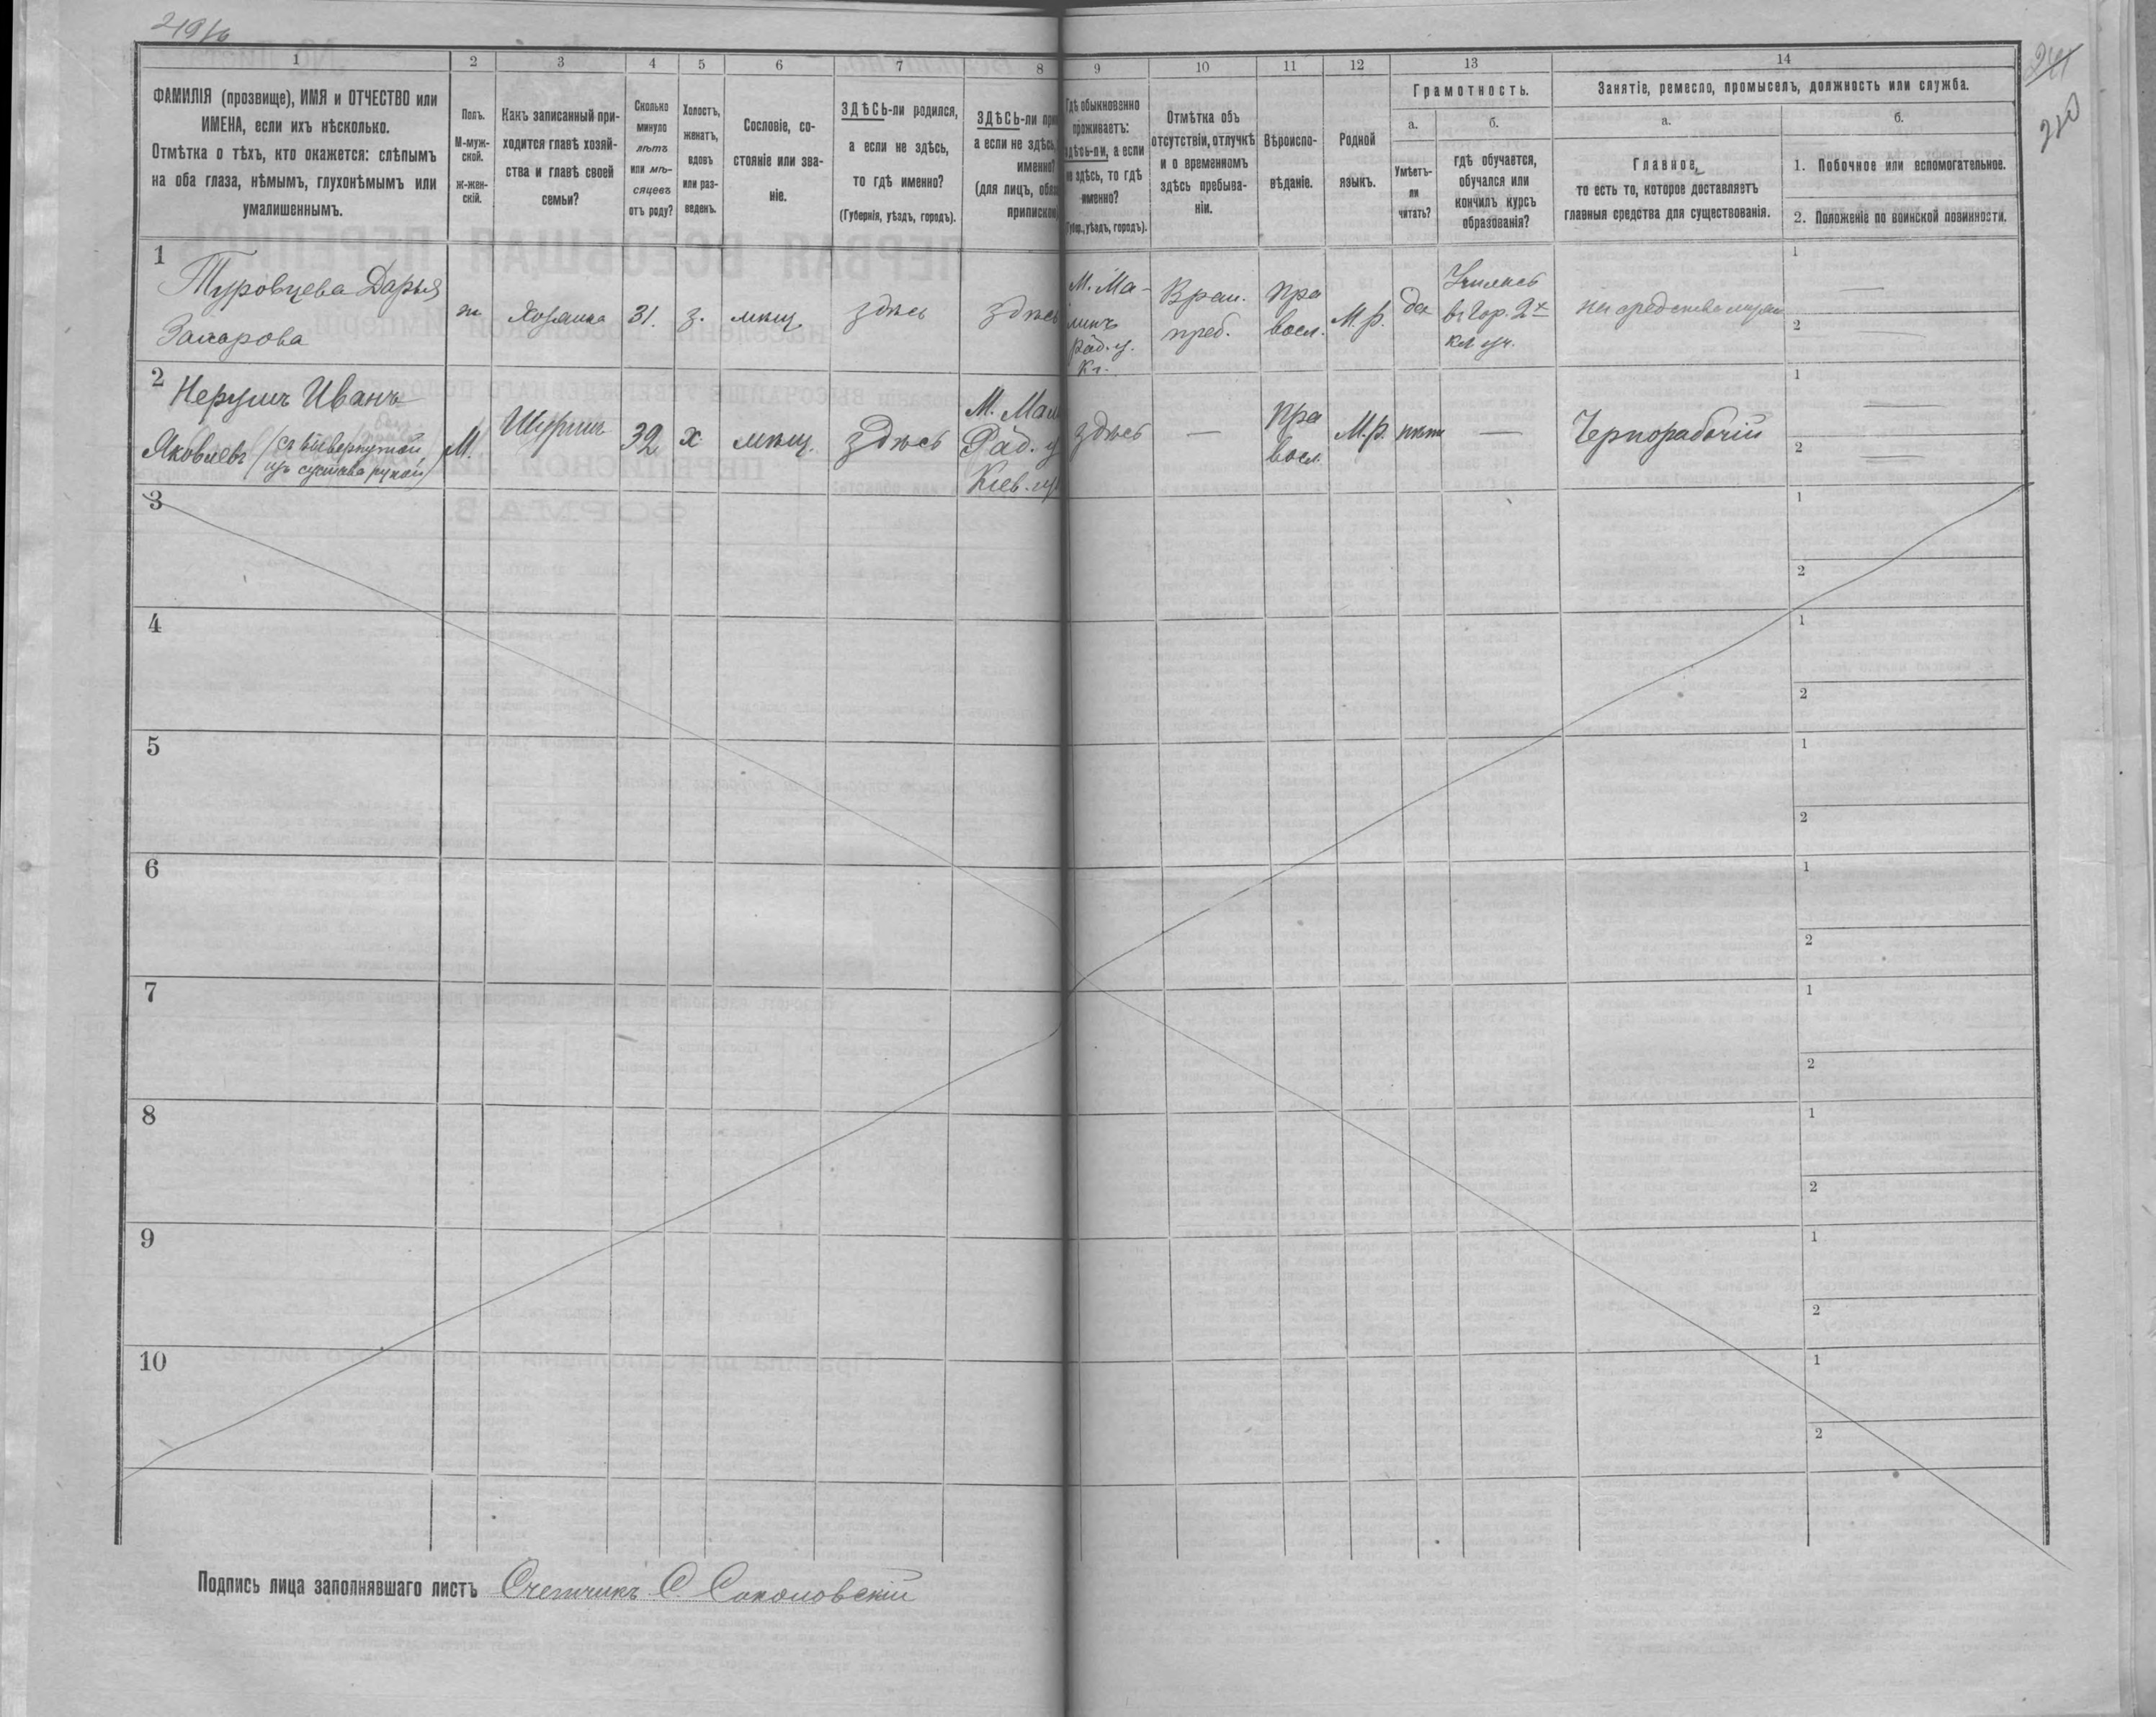 1
2
3
4
5
6
7
8
9
10
11
12
13
14
ФАМИЛІЯ (прозвище), ИМЯ и ОТЧЕСТВО или
ИМЕНА, если ихъ нѣсколько.
Отмѣтка о тѣхъ, кто окажется: слѣпымъ
на оба глаза, нѣмымъ, глухонѣмымъ или
умалишеннымъ.
Полъ.
М-муж-
ской.
Ж-жен-
скій.
Какъ записанный при-
ходится главѣ хозяй-
ства и главѣ своей
семьи?
Сколько
минуло
лѣтъ
или мѣ-
сяцевъ
отъ роду?
Холостъ,
женатъ,
вдовъ
или раз-
веденъ.
Сословіе, со-
стояніе или зва-
ніе.
ЗДѢСЬ-ли родился,
а если не здѣсь,
то гдѣ именно?
(Губернія, уѣздъ, городъ).
ЗДѢСЬ-ли
а если не здѣсь
именно?
(для лицъ,
Гдѣ обыкновенно
проживаетъ:
здѣсь-ли, а если
не здѣсь, то гдѣ
именно?
(Губер., уѣздъ, городъ).
Отмѣтка объ
отсутствіи, отлучкѣ
и о временномъ
здѣсь пребыва-
ніи.
Вѣроиспо-
вѣданіе.
Родной
языкъ.
Грамотность.
а.
Умѣетъ-
ли
читать?
б.
гдѣ обучается,
обучался или
кончилъ курсъ
образованія?
Занятіе, ремесло, промыселъ, должность или служба.
а.
Главное,
то есть то, которое доставляетъ
главныя средства для существованія.
б.
1. Побочное или вспомогательное.
2. Положеніе по воинской повинности.
1
Туровцева Дарья
Захарова
ж
Хозяйка
31.
з.
мѣщ
здѣсь
здѣсь
М. Ма-
линъ
Рад. у.
Врем.
преб.
пра
восл.
М.р.
да
въ Гор. 2х
кл уч.
на средства мужа
1
2
2
Иванъ
Яковлевъ (съ вывернутой
изъ сустава рукой)
М.
Шуринъ
32
х
мѣщ.
здѣсь
М. Мал
Рад. у
Кіев.
здѣсь
—
пра
восл.
М.р.
нѣтъ
—
Чернорабочій
1
2
3
1
2
4
1
2
5
1
2
6
1
2
7
1
2
8
1
2
9
1
2
10
1
2
Подпись лица заполнявшаго листъ Счетчикъ С Соколовскій